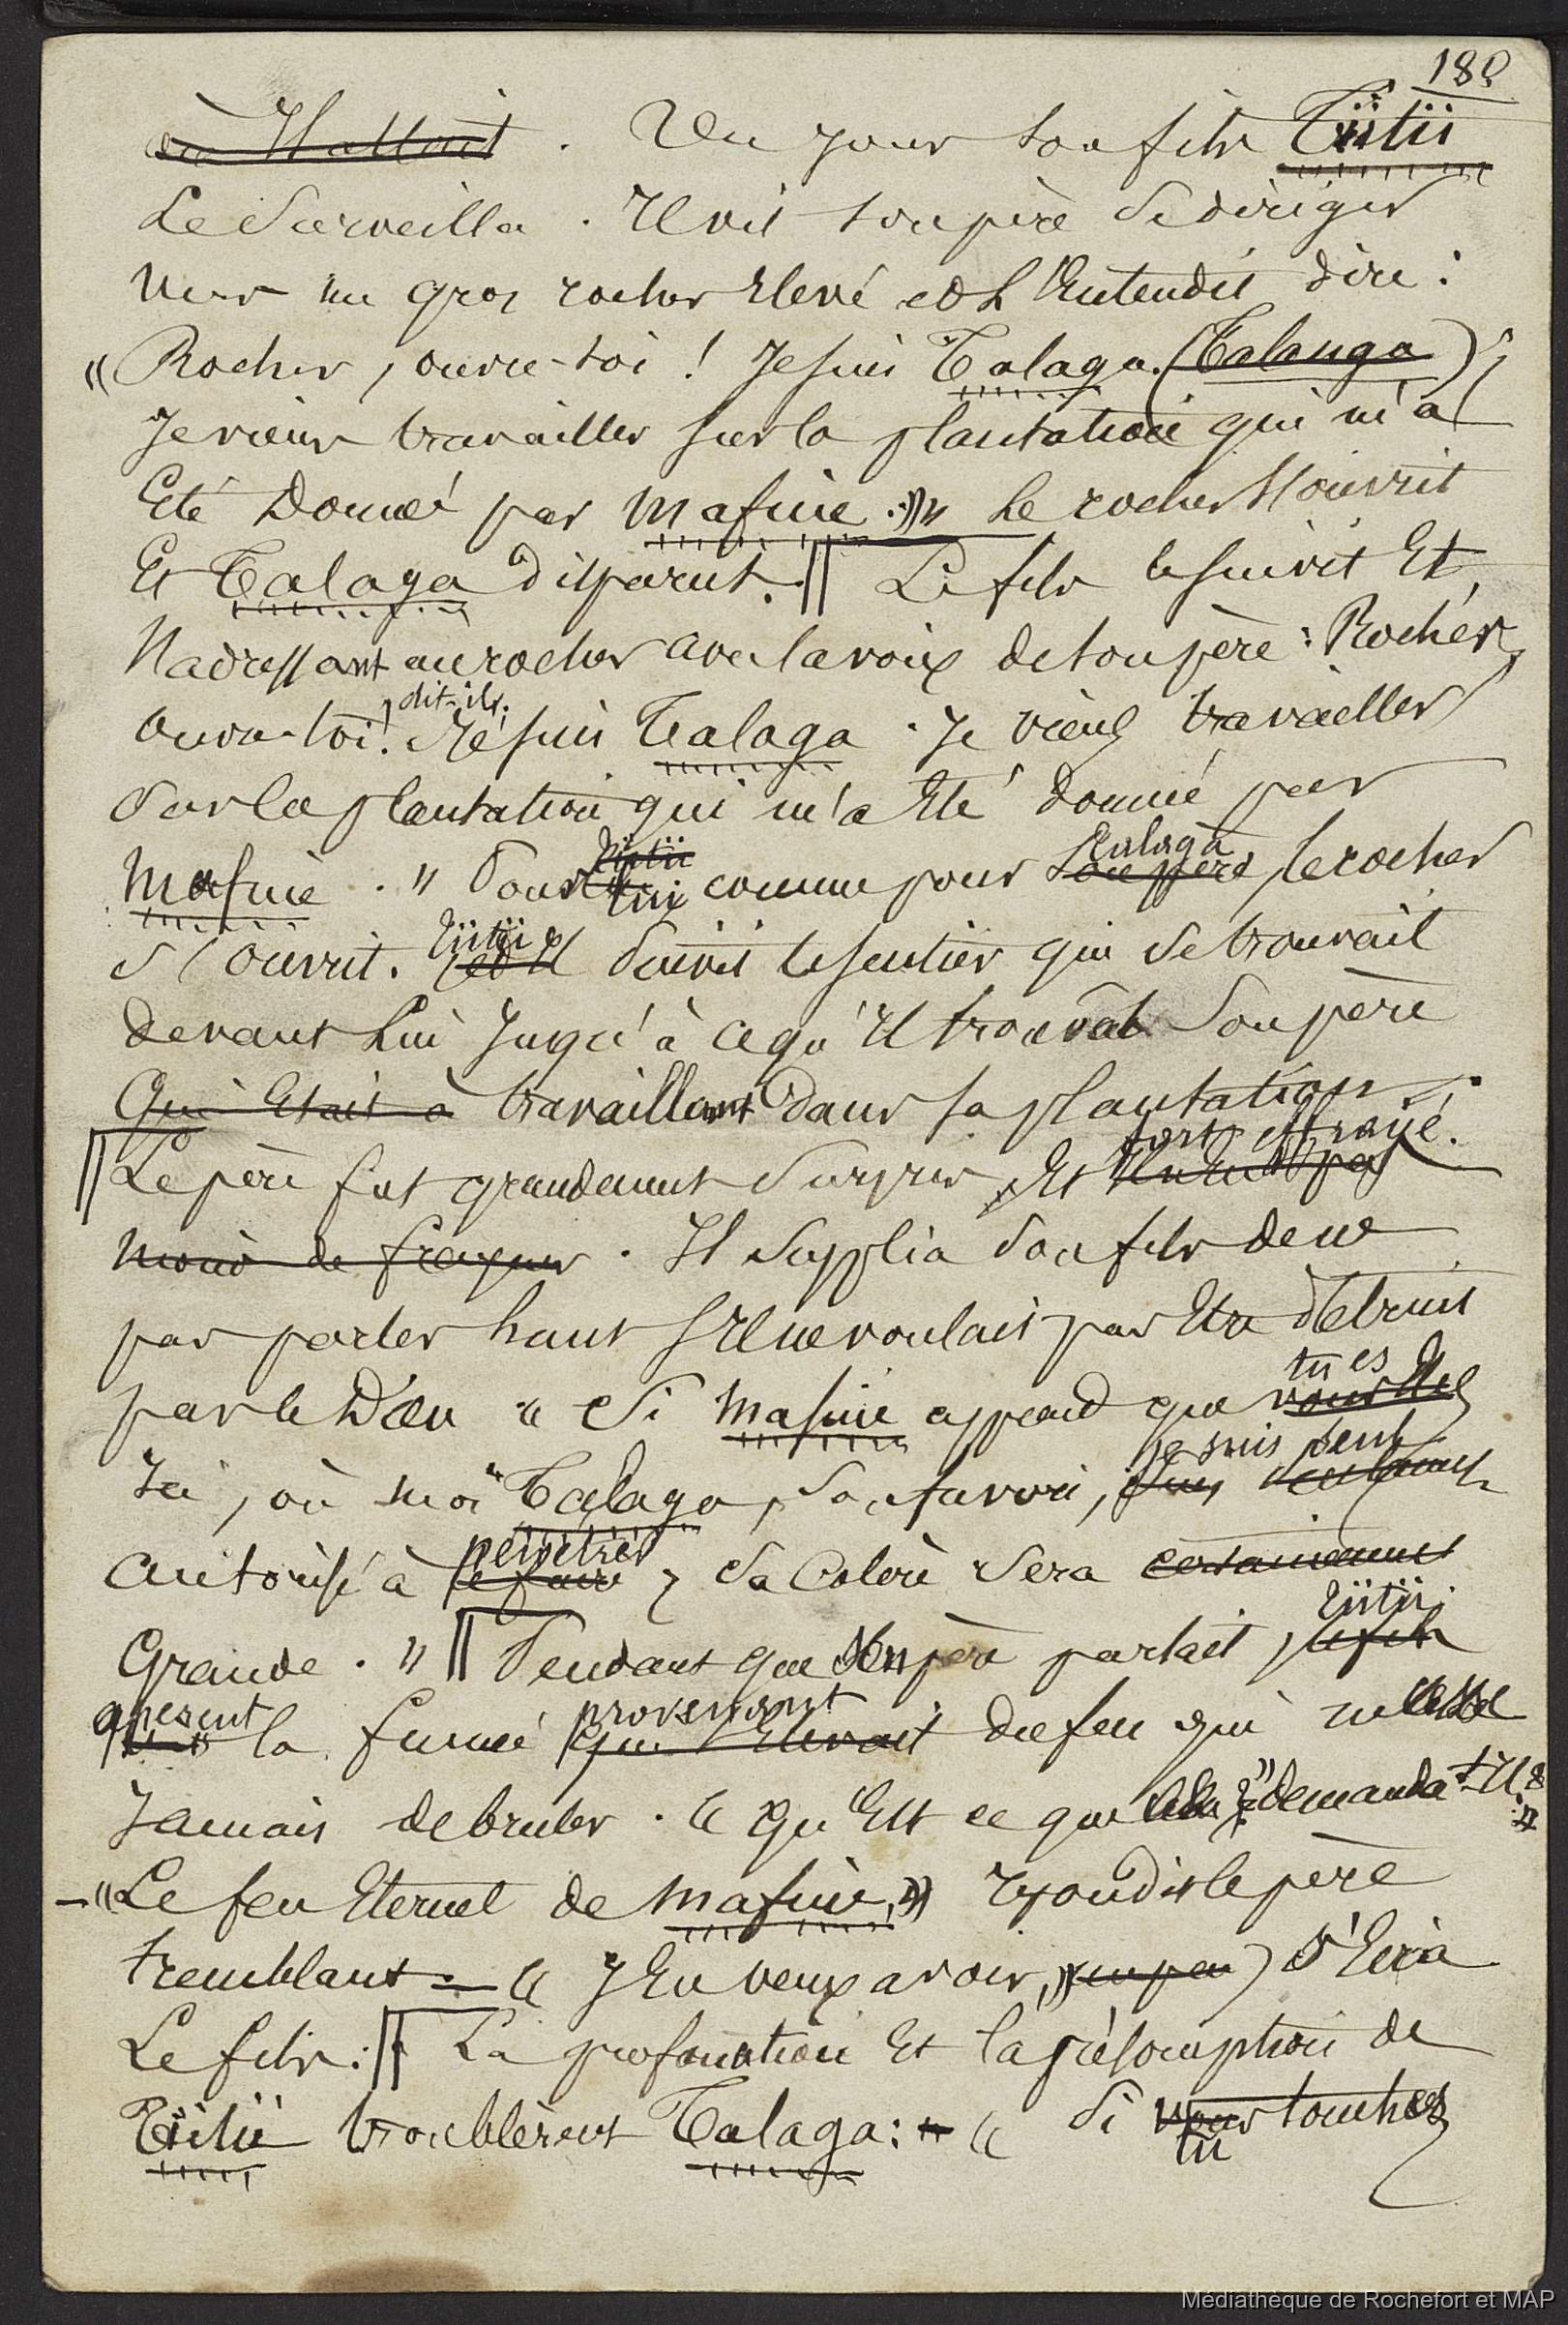 180
où Il allait. Un jour son fils Tïitii
Le Surveilla. Il vit son père Se diriger
Vers un gros rocher Elevé et L'Entendit dire :
« Rocher, ouvre-toi ! Je suis Talaga. (Talanga) ;
Je viens travailler sur la plantation qui m'a
Eté Donnée par Mafuie. » Le rocher S'ouvrit
Et Talaga disparut. // Le fils le suivit Et,
S'adressant au rocher avec la voix de son père : Rocher,
, dit-il,
Ouvre-toi ! Je suis Talaga. Je viens travailler
Sur la plantation qui m'a Eté donnée par
Tïitii Talaga
Mafuie. » Pour lui comme pour Son père, le rocher
Tïitii
S'ouvrit. et Il Suivit le sentier qui Se trouvait
Devant Lui Jusqu'à ce qu'Il trouvat Son père
Qui Etait à travaillant Dans sa plantation.
fort effrayé.
// Le père fut grandement Surpris Et
Moins de frayeur. Il Supplia Son fils de ne
pas parler haut S'Il ne voulait pas Etre détruit
tu es
par le Dieu « Si Mafuie apprend que vous Etes
je suis seul
Ici, où moi Talaga, Son favori, suis seulement
pénétrer
Autorisé à le faire, Sa Colère Sera certainement
Tïitii
Grande. » // Pendant que Son père parlait, le fils
aperçut provenant
vit la fumée qui s'élevait du feu qui ne cesse
Jamais de bruler. « Qu'Est ce que cela ? » demanda-t-Il.
– « Le feu Eternel de Mafuie, » répondit le père
tremblant. – « J'En veux avoir, » un peu) S'Ecria
Le fils. // La profanation Et la présomption de
Tïitii troublèrent Talaga : « Si vous touches
tu
Médiathèque de Rochefort et MAP